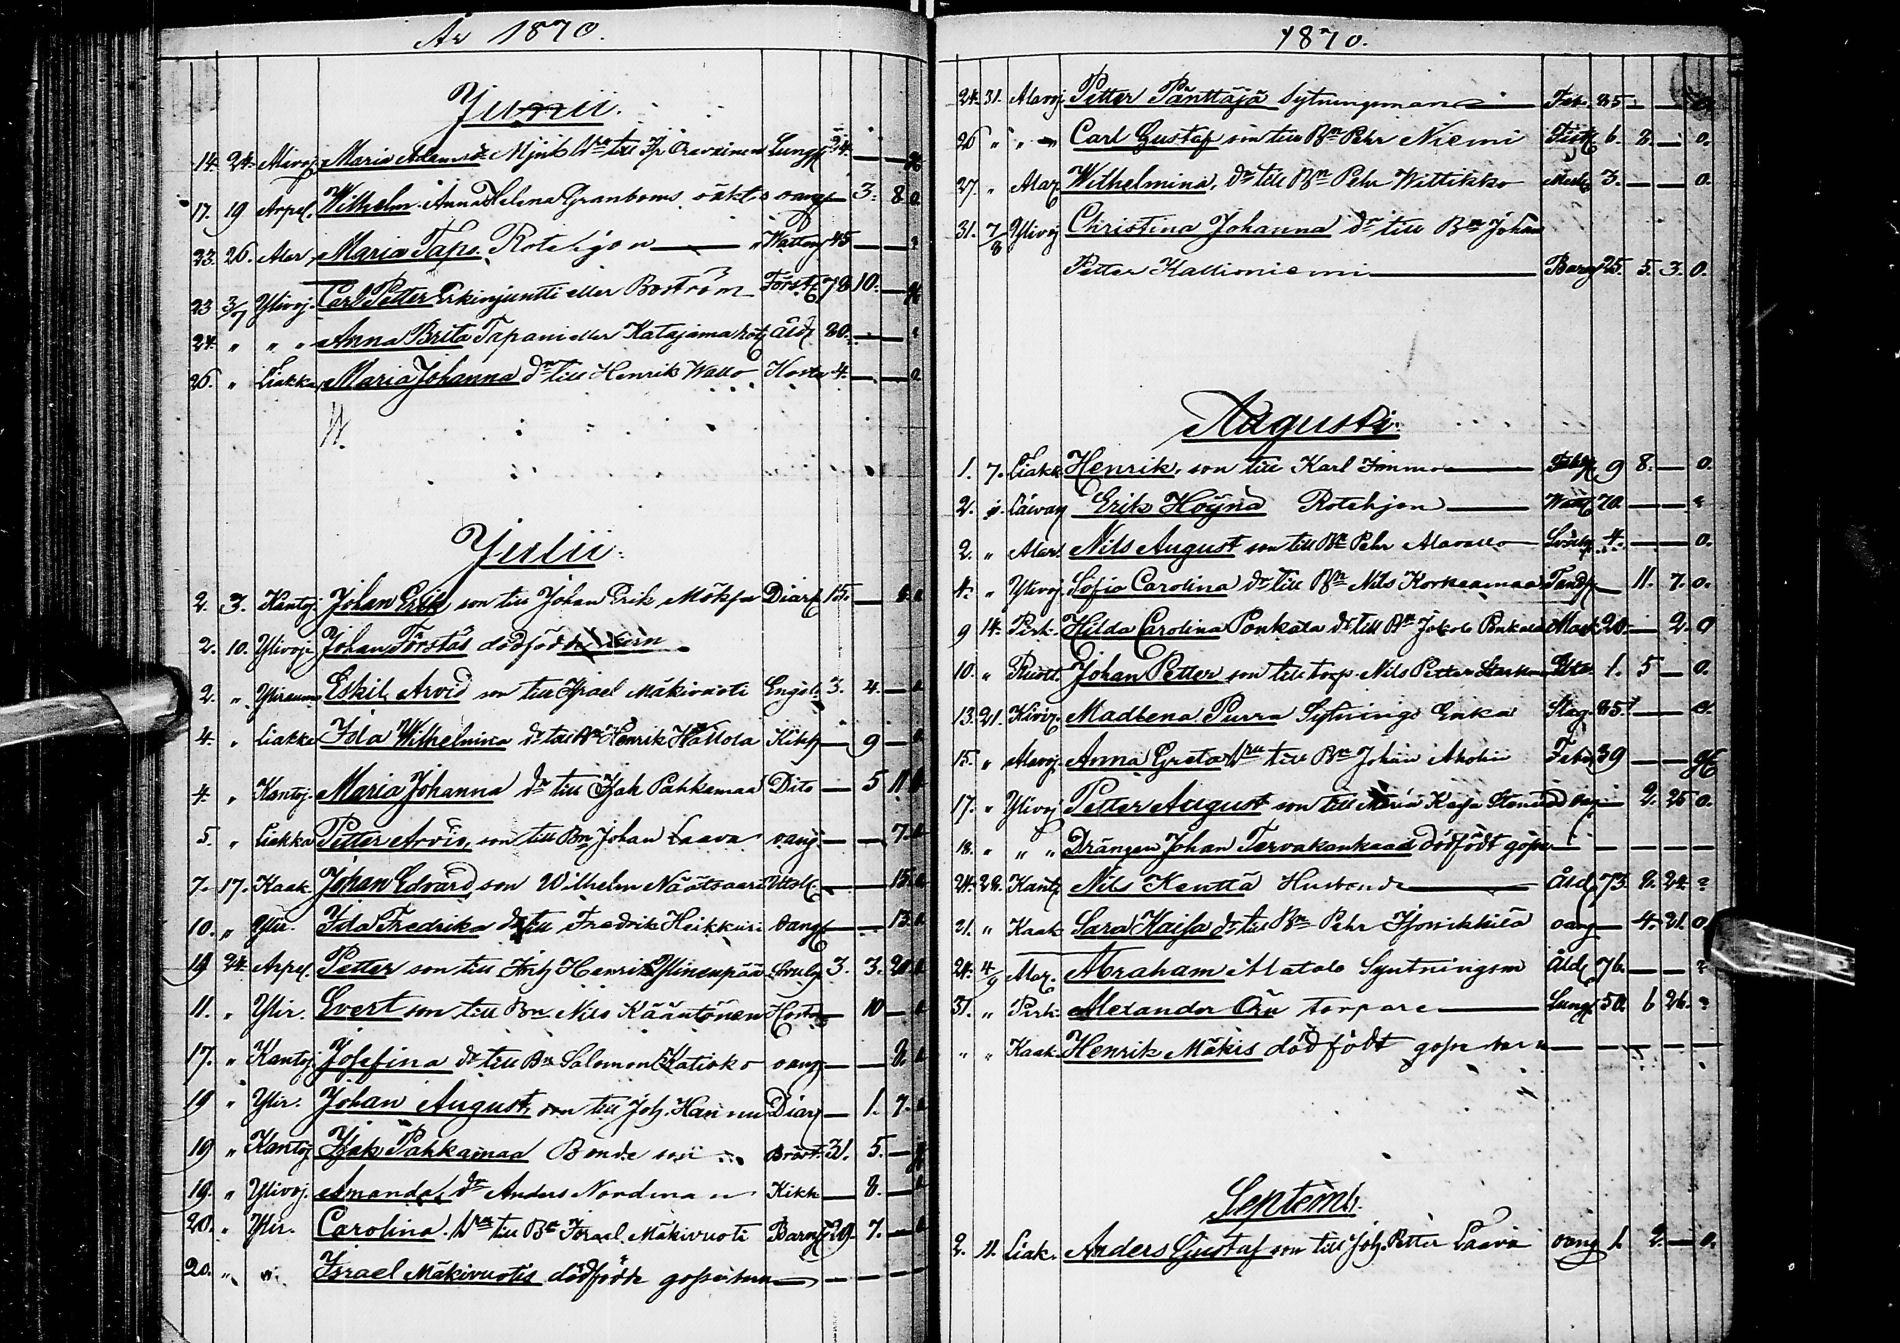 År 1870.
Junii.
14. 24. Alavoj. Maria Adamsdr Mjnk hru till Ip Oravainen Lungs 34. — —
17. 19 Arpel. Wilhelm Anna Helena Granboms oäkta oang — 3. 8 0
23. 26. Alar Maria Tapo Rotehjon — Wattens 45 — —
23 3/7 Ylivoj. Carl Petter Erkinjuntti eller Boström Först 78 10. —
24. " " " Anna Brita Tapani eller Katajama Åld. 80. — —
26. " Liakka Maria Johanna dr till Henrik Wallo Hosta 4. — —
Julii.
2. 3. Kantoj. Johan Erik son till Johan Erik Mökja Diarh 15. —
2. 10. Ylivoje Johan Törstäs dödfödt
2. " Yliraum Eskil Arvid son till Israel Mäkivuoti Engel. 3. 4. —
4. " Liakka Ida Wilhelmina dr till Bn Henrik Hallola Kikh — 9 —
4. " Kantoj. Maria Johanna dr till Isak Pahkamaa Dito — 5 11
5. " Liakka Petter Arvid, son till Bn Johan Laava oang — — 7.
7. 17. Kaak. Johan Edvard son Wilhelm Näätsaari — — 15.
10. " Ylir. Ida Fredrika dr till Fredrik Heikkuri oang — — 13.
19 24. Arpel. Petter son till Fritz Henrik Ylinenpää 3. 3. 20
11. " Ylir. Evert son till Bn Nils Kääntönen Hosta — 10 —
17. " Kantoj. Josefina dr till Bn Salomon Katisko oang — — 2.
19 " Ylir. Johan August, son till Joh. Hannu Diarh — 1. 7.
19 " Kantoj. Isak Pahkamaa Bonde son Bröst. 31. 5. —
19. " Ylivoj. Amanda, dr Anders Nordman Kikh — 8. —
20. " Ylir. Carolina. hru till Bn Israel Mäkivuoti Barns 29. 7. —
20. " " Israel Mäkivuotis dödfödde gossebarn — — — —
1870.
24. 31. Alavoj. Petter Pänttäjä Sytningsman — 85. — —
26 " " Carl Gustaf son till Bn Pehr Niemi 6. 2. — 0.
27. " Alar. Wilhelmina, dr till Bn Pehr Wittikko 3. — — 0.
31. 7/8 Ylivoj Christina Johanna dr till Bn Johan
Petter Kallioniemi — Barns 25. 5. 3. 0.
Augusti.
1. 7. Liakk Henrik, son till Karl Immo — 9 8. — 0.
2. " Laivan Erik Höynä Rotehjon — Watt 70. — —
2. " Alar. Nils August son till Bn Pehr Alavallo 4. — — 0.
4. " Ylivoj. Sofia Carolina dr till Bn Nils Korkeamaa Tands — 11. 7. 0.
9 14. Pirk. Hilda Carolina Ponkala dr till Bn Jakob Ponkala Mask 20. — 2. 0
10. " Ruott. Johan Petter son till torp. Nils Petter 1. 5 — 0.
13. 21. Kivir. Madlena Purra Sytnings Enka Slag. 85. — —
15. " Alavoj. Anna Greta hru till Bn Johan Aholin Feber 39 — —
17. " Ylivoj Petter August son till Maria Kaisa oang — 2. 25 0.
18. " " " Drängen Johan Tervakankaas dödfödt gosse — — — —
24. 28. Kantoj Nils Kenttä Husbonde — Åld. 73. 2. 24.
21. " Kaak Sara Kaisa dr till Bn Pehr oang — 4. 21. 0
24. 4/9 Alar. Abraham Alatalo Sytningsm Åld. 76. — —
31. " Pirk. Alexander Oru torpare — Lung. 50. 6 26.
" " Kaak. Henrik Mäkis dödfödt gossebarn — — — —
Septemb.
2. 11. Liak. Anders Gustaf son till Joh. Petter Laava oang 1. 2. — 0.